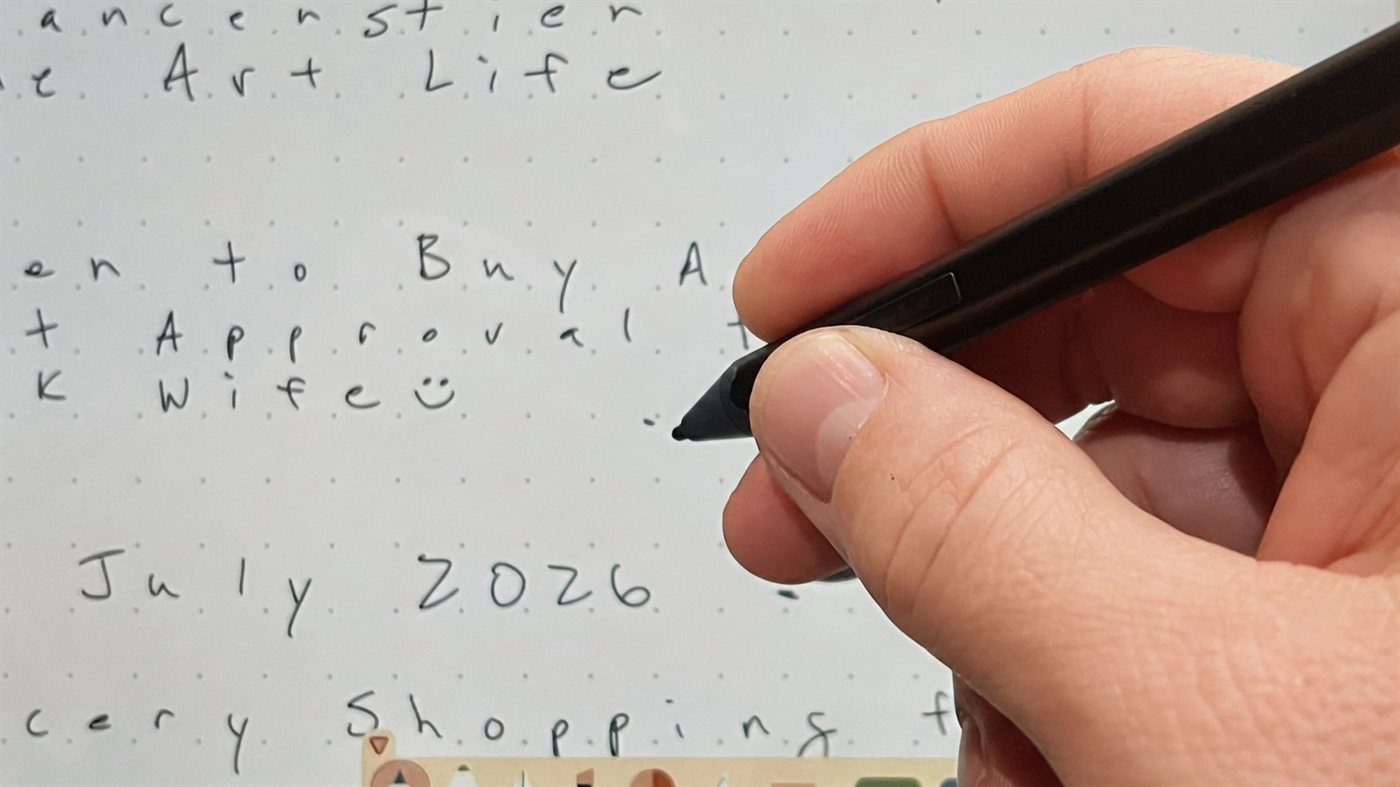 ancenstien
e Art Life
en to Buy A
t Approval t
k Wife☺
July 2026
cery Shopping f